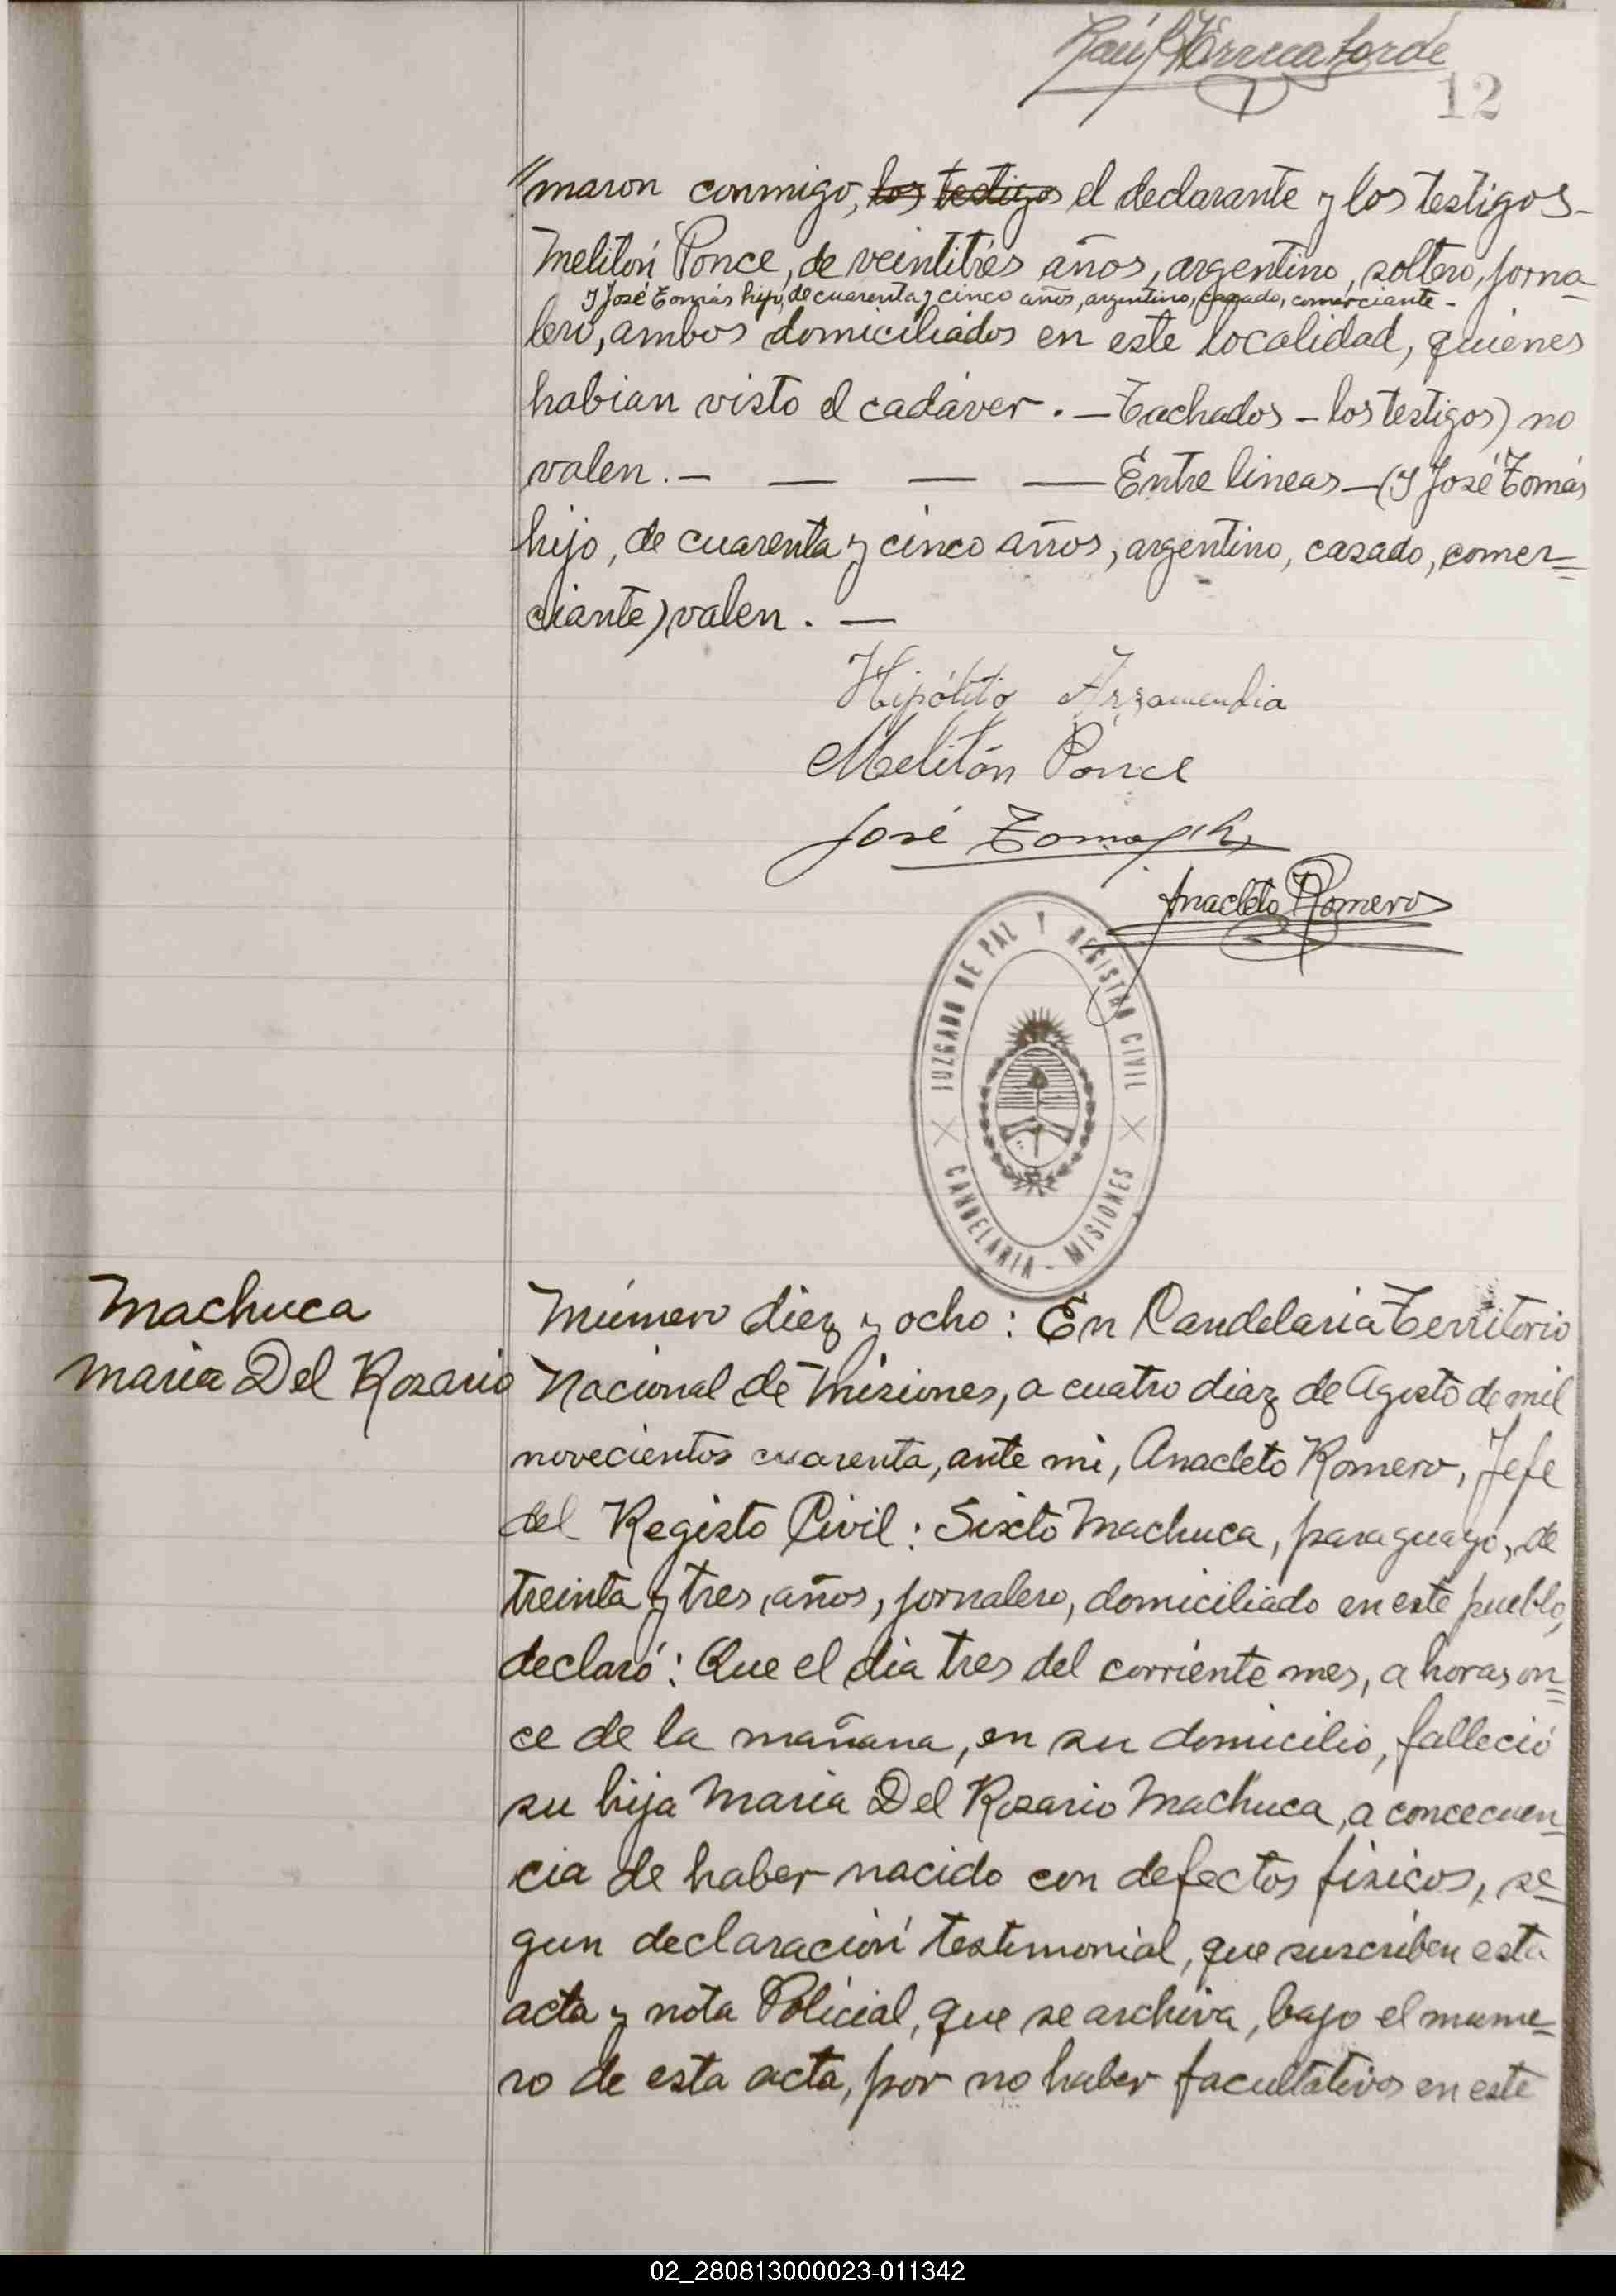 12
"maron conmigo, los testigos el declarante y los testigos-
Melitón Ponce, de veintitrés años, argentino, soltero, jorna-
y José Tomás hijo, de cuarenta y cinco años, argentino, casado, comerciante-
lero, ambos domiciliados en este localidad, quienes
habian visto el cadáver. - Tachados - los testigos) no
valen. - — — — Entre lineas - (y José Tomás
hijo, de cuarenta y cinco años, argentino, casado, comer=
ciante) valen. —
Hipólito Arzamendia
Melitón Ponce
José Tomas h
Anacleto Romero
JUZGADO DE PAZ Y REGISTRO CIVIL
CANDELARIA - MISIONES
Machuca
Maria Del Rosario
Número diez y ocho: En Candelaria Territorio
Nacional de Misiones, a cuatro diaz de Agosto de mil
novecientos cuarenta, ante mi, Anacleto Romero, Jefe
del Registo Civil: Sixto Machuca, paraguayo, de
treinta y tres años, jornalero, domiciliado en este pueblo,
declaró: Que el dia tres del corriente mes, a horas on=
ce de la mañana, en su domicilio, falleció
su hija Maria Del Rosario Machuca, a concecuen=
cia de haber nacido con defectos fisicos, se=
gun declaración testimonial, que suscriben esta
acta y nota Policial, que se archiva, bajo el nume=
ro de esta acta, por no haber facultativos en este
02_280813000023-011342